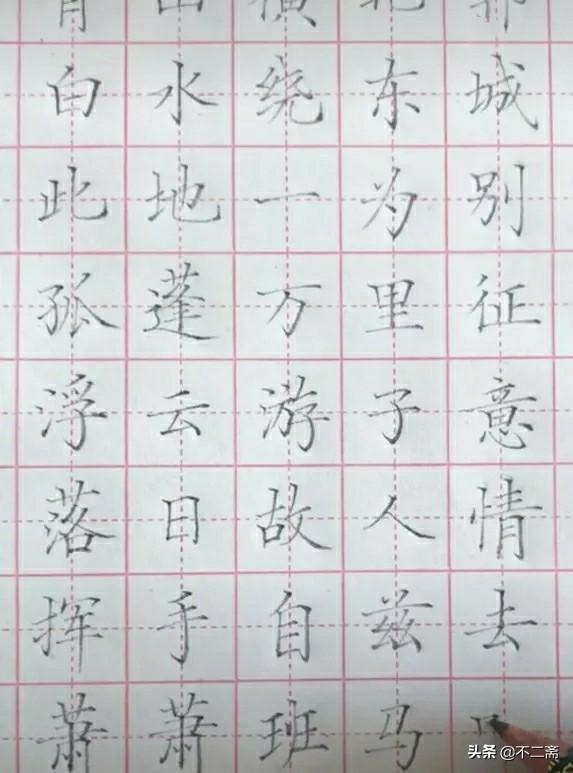 青山横北郭
白水绕东城
此地一为别
孤蓬万里征
浮云游子意
落日故人情
挥手自兹去
萧萧班马
头条 @不二斋